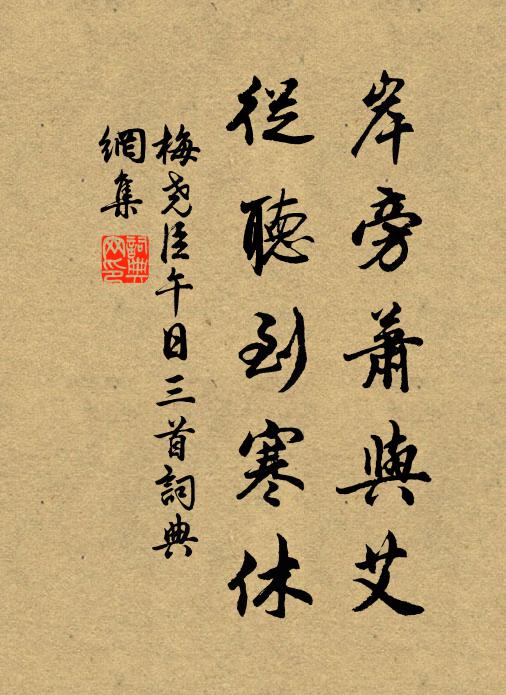 岸旁蕭與艾
從聽到寒休
梅尧臣午日三首詞典
網集
詞典
网印